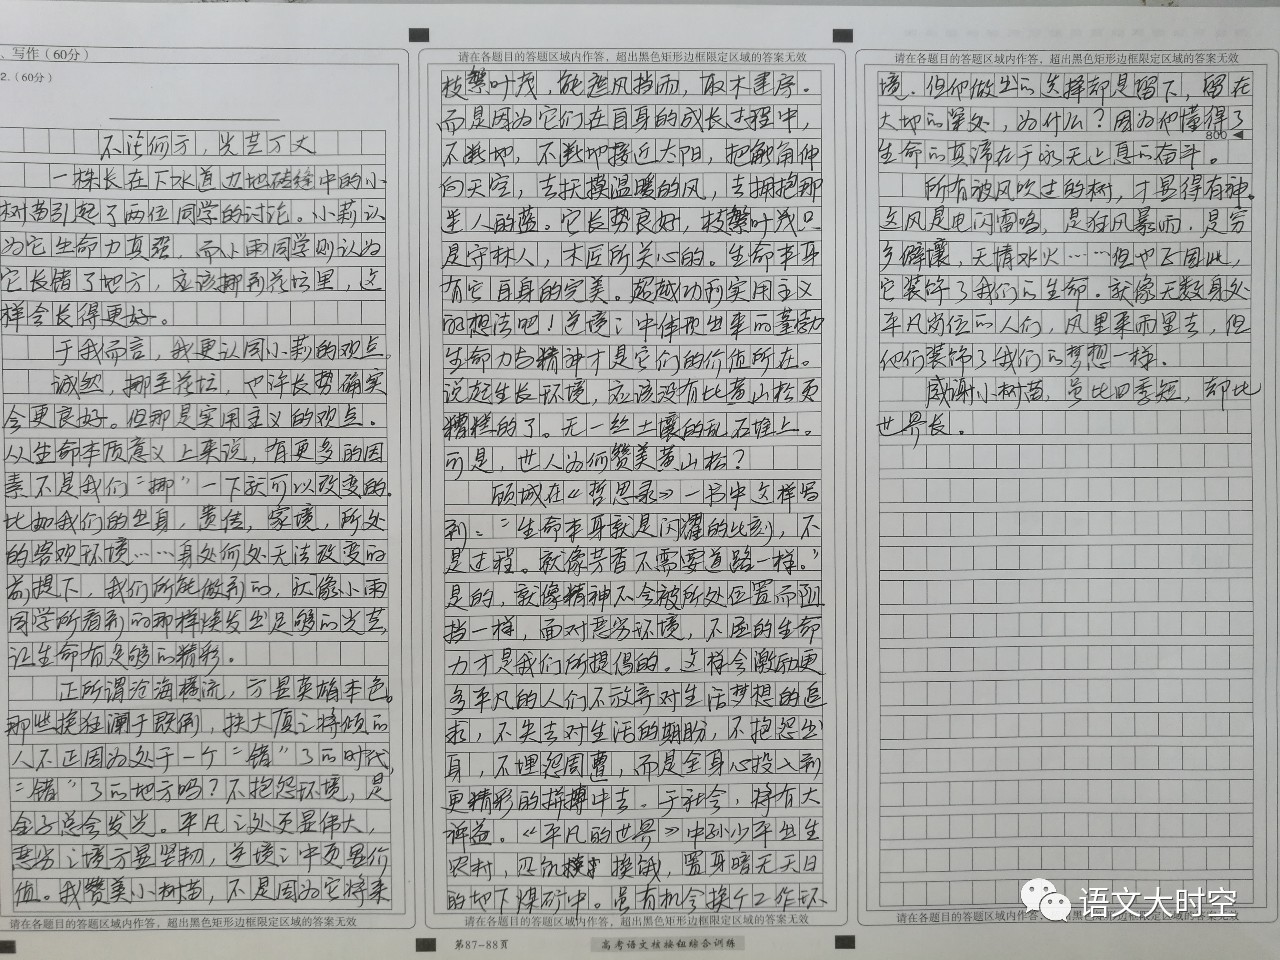 、写作（60分）
2.（60分）
不论何方，光芒万丈
一株长在下水道边地砖缝中的小
树苗引起了两位同学的讨论。小莉认
为它生命力真强，而小雨同学则认为
它长错了地方，应该挪到花坛里，这
样会长得更好。
于我而言，我更认同小莉的观点。
诚然，挪至花坛，也许长势确实
会更良好。但那是实用主义的观点。
从生命本质意义上来说，有更多的因
素不是我们“挪”一下就可以改变的。
比如我们的出身，遗传，家境，所处
的客观环境……身处何处无法改变的
前提下，我们所能做到的，就像小雨
同学所看到的那样焕发出足够的光芒，
让生命有足够的精彩。
正所谓沧海横流，方显英雄本色。
那些挽狂澜于既倒，扶大厦之将倾的
人不正因为处于一个“错”了的时代，
“错”了的地方吗？不抱怨环境，是
金子总会发光。平凡之处更显伟大，
恶劣之境方显坚韧，逆境之中更显价
值。我赞美小树苗，不是因为它将来
请在各题目的答题区域内作答，超出黑色矩形边框限定区域的答案无效
请在各题目的答题区域内作答，超出黑色矩形边框限定区域的答案无效
枝繁叶茂，能遮风挡雨，取木建序。
而是因为它们在自身的成长过程中，
不断地，不断地接近太阳，把触角伸
向天空，去抚摸温暖的风，去拥抱那
迷人的蓝。它长势良好，枝繁叶茂只
是守林人，木匠所关心的。生命本身
有它自身的完美。超越功利实用主义
的想法吧！逆境之中体现出来的蓬勃
生命力与精神才是它们的价值所在。
说起生长环境，应该没有比黄山松更
糟糕的了。无一丝土壤的乱石堆上。
可是，世人为何赞美黄山松？
顾城在《哲思录》一书中这样写
到：“生命本身就是闪耀的此刻，不
是过程。就像芳香不需要道路一样。”
是的，就像精神不会被所处位置而阻
挡一样，面对恶劣环境，不屈的生命
力才是我们所提倡的。这样会激励更
多平凡的人们不放弃对生活梦想的追
求，不失去对生活的期盼，不抱怨出
身，不埋怨周遭，而是全身心投入到
更精彩的拼搏中去。于社会，将有大
裨益。《平凡的世界》中孙少平出生
农村，忍饥挨饿，置身暗无天日
的地下煤矿中。虽有机会换个工作环
请在各题目的答题区域内作答，超出黑色矩形边框限定区域的答案无效
第87-88页
高考语文核按钮综合训练
请在各题目的答题区域内作答，超出黑色矩形边框限定区域的答案无效
境，但他做出的选择却是留下，留在
大地的深处，为什么？因为他懂得了
800
生命的真谛在于永无止息的奋斗。
所有被风吹过的树，才显得有神。
这风是电闪雷鸣，是狂风暴雨，是穷
乡僻壤，无情水火……但也正因此，
它装饰了我们的生命。就像无数身处
平凡岗位的人们，风里来雨里去，但
他们装饰了我们的梦想一样。
感谢小树苗，虽比四季短，却比
世界长。
请在各题目的答题区域内作答，超出黑色矩形边框限定区域的答案无效
语文大时空